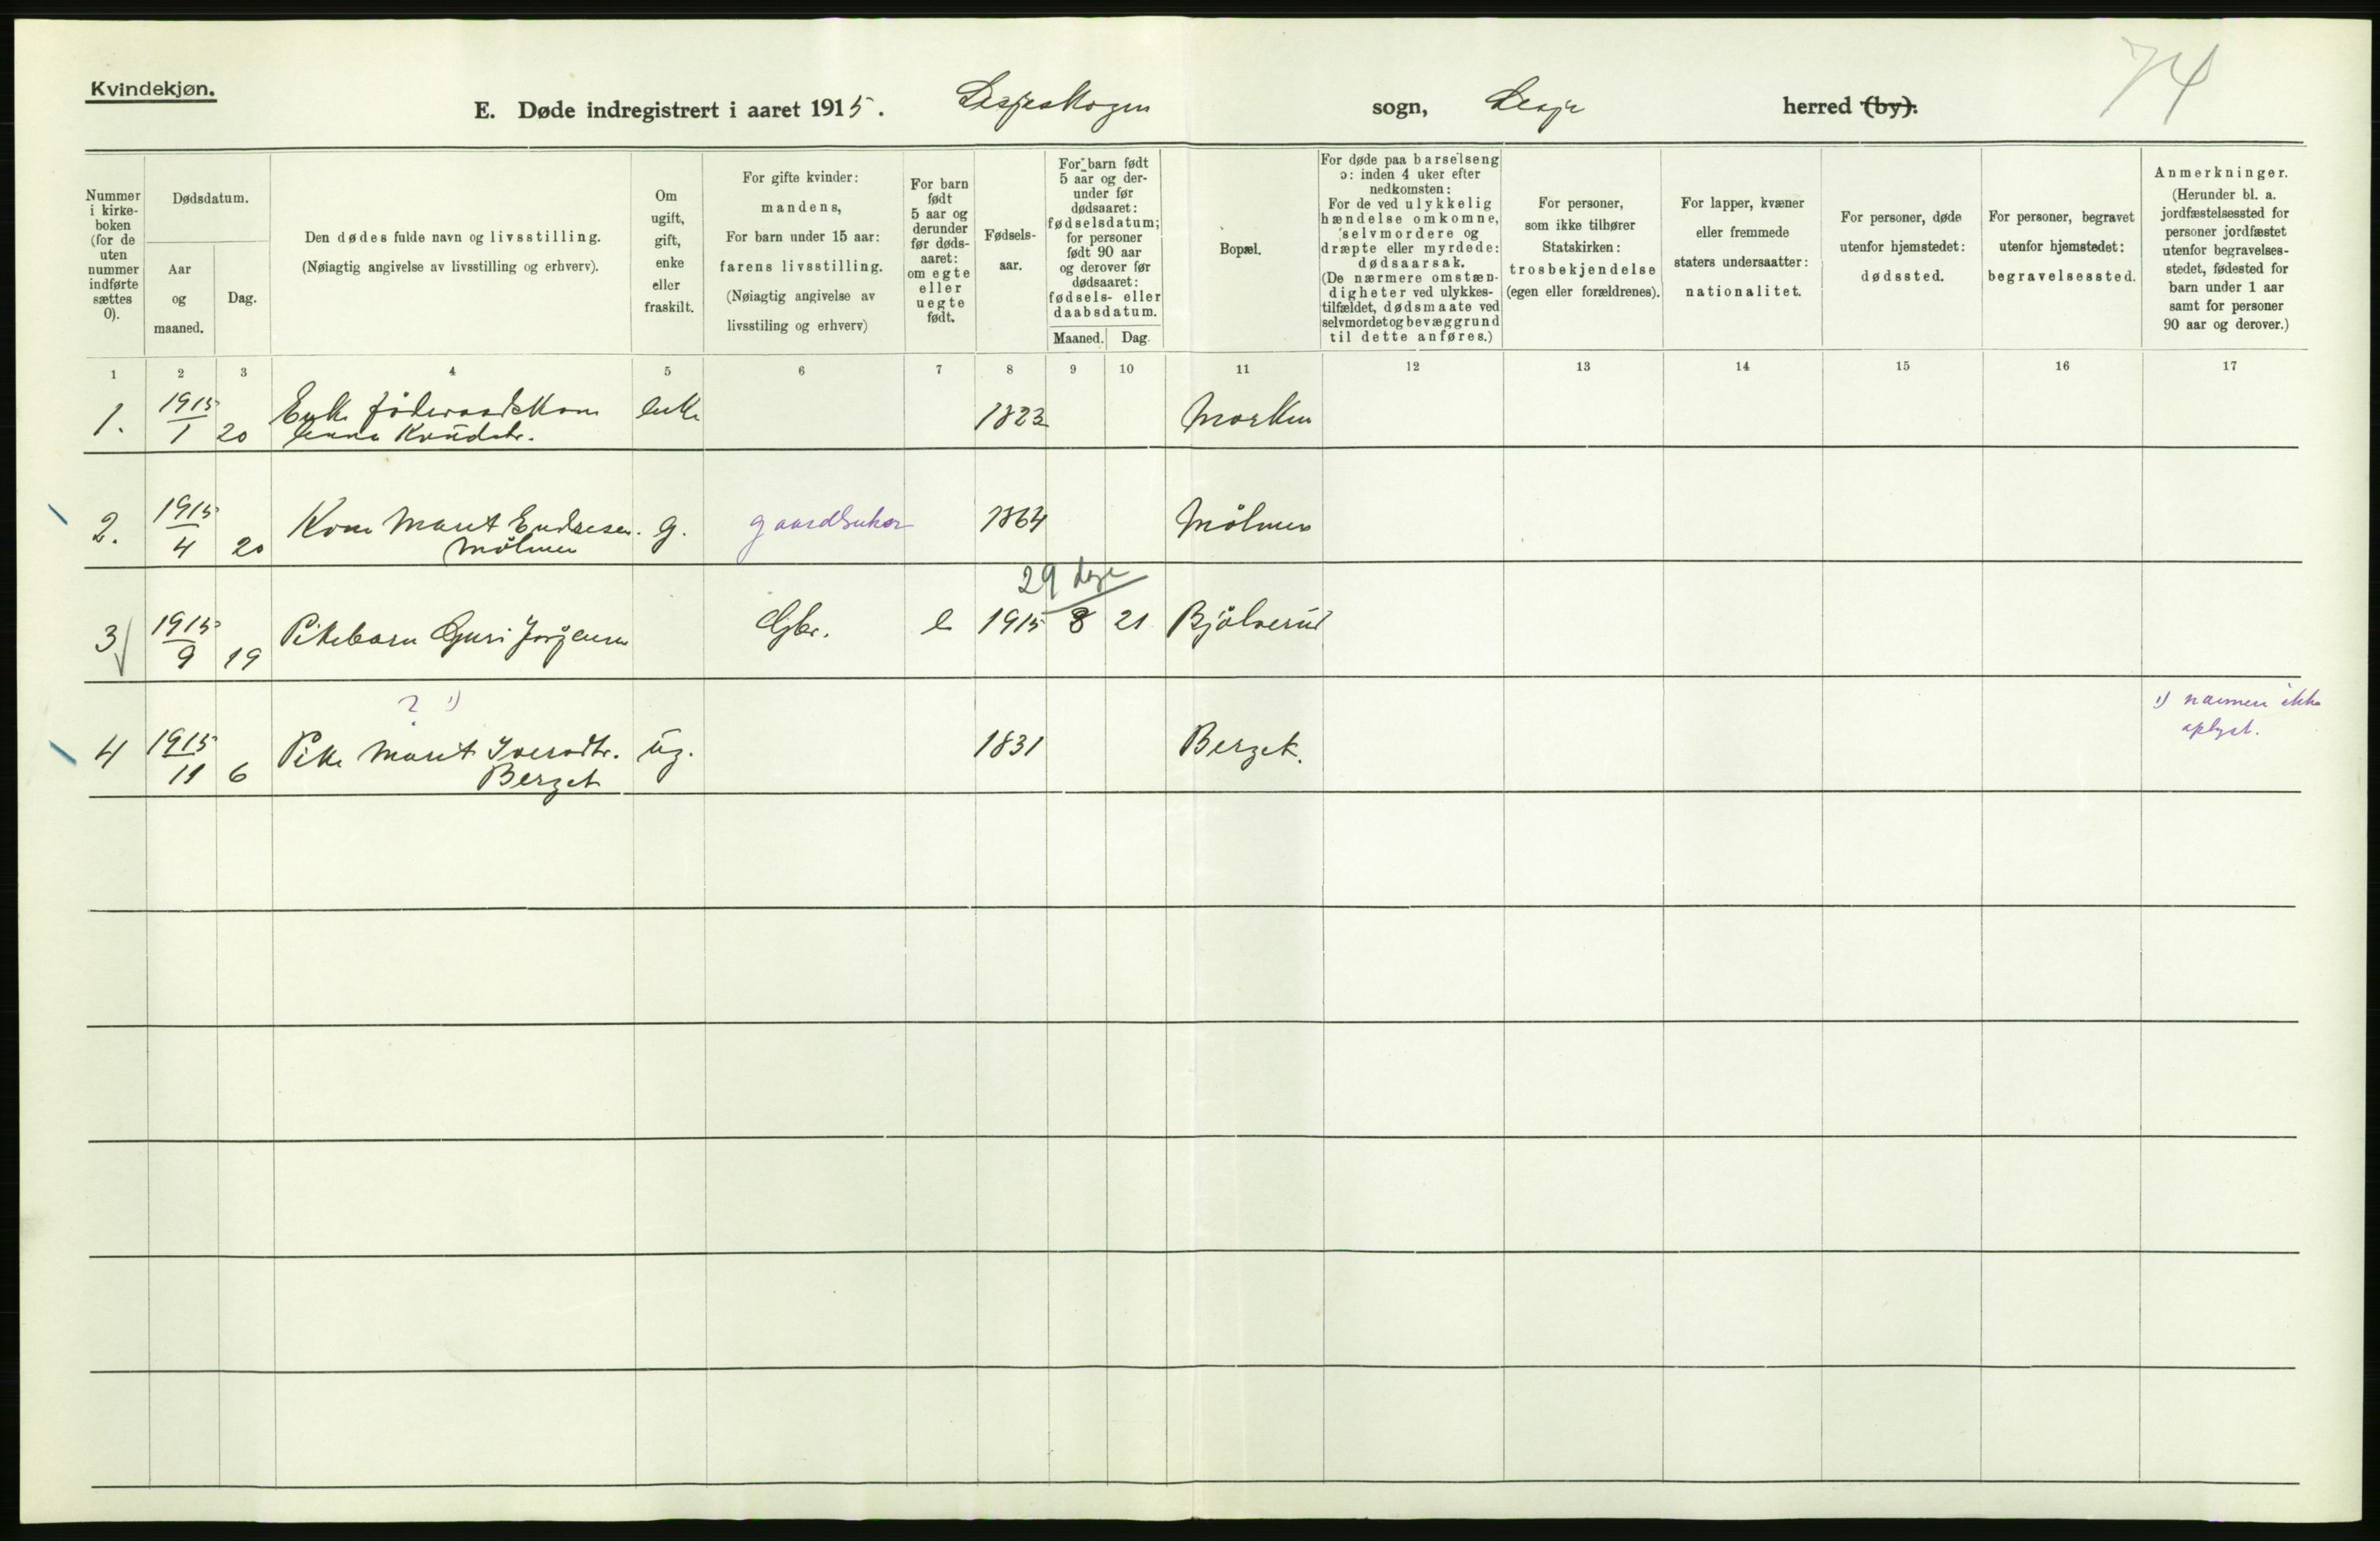 Kvindekjøn.
74
E. Døde indregistrert i aaret 1915. Lesjeskogen sogn, Lesje herred (by).
Nummer
i kirke-
boken
(for de
uten
nummer
indførte
sættes
0).
Dødsdatum.
Aar
og
maaned.
Dag.
Den dødes fulde navn og livsstilling.
(Nøiagtig angivelse av livsstilling og erhverv).
Om
ugift,
gift,
enke
eller
fraskilt.
For gifte kvinder:
mandens,
For barn under 15 aar:
farens livsstilling.
(Nøiagtig angivelse av
livsstiling og erhverv)
For barn
født
5 aar og
derunder
før døds-
aaret:
om egte
eller
uegte
født.
Fødsels-
aar.
For barn født
5 aar og der-
under før
dødsaaret:
fødselsdatum;
for personer
født 90 aar
og derover før
dødsaaret:
fødsels- eller
daabsdatum.
Maaned. Dag.
Bopæl.
For døde paa barselseng
ɔ: inden 4 uker efter
nedkomsten:
For de ved ulykkelig
hændelse omkomne,
selvmordere og
dræpte eller myrdede:
dødsaarsak.
(De nærmere omstæn-
digheter ved ulykkes-
tilfældet, dødsmaate ved
selvmordet og bevæggrund
til dette anføres.)
For personer,
som ikke tilhører
Statskirken:
trosbekjendelse
(egen eller forældrenes).
For lapper, kvæner
eller fremmede
staters undersaatter:
nationalitet.
For personer, døde
utenfor hjemstedet:
dødssted.
For personer, begravet
utenfor hjemstedet:
begravelsessted.
Anmerkninger.
(Herunder bl. a.
jordfæstelsessted for
personer jordfæstet
utenfor begravelses-
stedet, fødested for
barn under 1 aar
samt for personer
90 aar og derover.)
1 2 3 4 5 6 7 8 9 10 11 12 13 14 15 16 17
1. 1915/1 20 Enke føderaadskone enke 1823 Morken
Anna Knudsdtr.
2. 1915/4 20 Kone Marit Endresen g. gaardbruker 1864 Mölmen
Mölmen
29 dage
3 1915/9 19 Pikebarn Guri Jorgensen Gbr. e 1915 8 21 Bjölverud
? 1)
1) navnen ikke
oplyst.
4 1915/11 6 Pike Marit Iversdtr. ug. 1831 Berget.
Berget